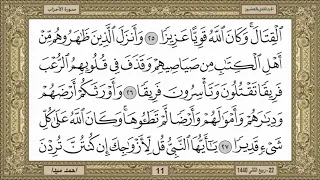 سورة الأحزاب
ٱلۡقِتَالَۚ وَكَانَ ٱللَّهُ قَوِيًّا عَزِيزٗا ٢٥ وَأَنزَلَ ٱلَّذِينَ ظَٰهَرُوهُم مِّنۡ
أَهۡلِ ٱلۡكِتَٰبِ مِن صَيَاصِيهِمۡ وَقَذَفَ فِي قُلُوبِهِمُ ٱلرُّعۡبَ
فَرِيقٗا تَقۡتُلُونَ وَتَأۡسِرُونَ فَرِيقٗا ٢٦ وَأَوۡرَثَكُمۡ أَرۡضَهُمۡ
وَدِيَٰرَهُمۡ وَأَمۡوَٰلَهُمۡ وَأَرۡضٗا لَّمۡ تَطَـُٔوهَاۚ وَكَانَ ٱللَّهُ عَلَىٰ كُلِّ
شَيۡءٖ قَدِيرٗا ٢٧ يَٰٓأَيُّهَا ٱلنَّبِيُّ قُل لِّأَزۡوَٰجِكَ إِن كُنتُنَّ تُرِدۡنَ
22 - ربيع الثاني 1440
11